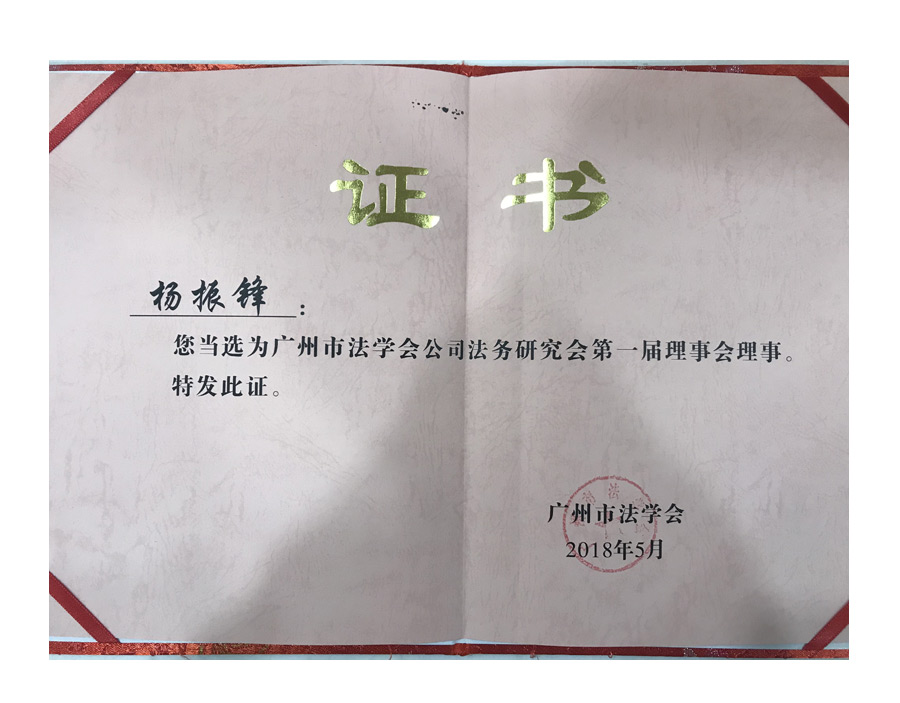 证书
杨振锋：
您当选为广州市法学会公司法务研究会第一届理事会理事。
特发此证。
广州市法学会
2018年5月